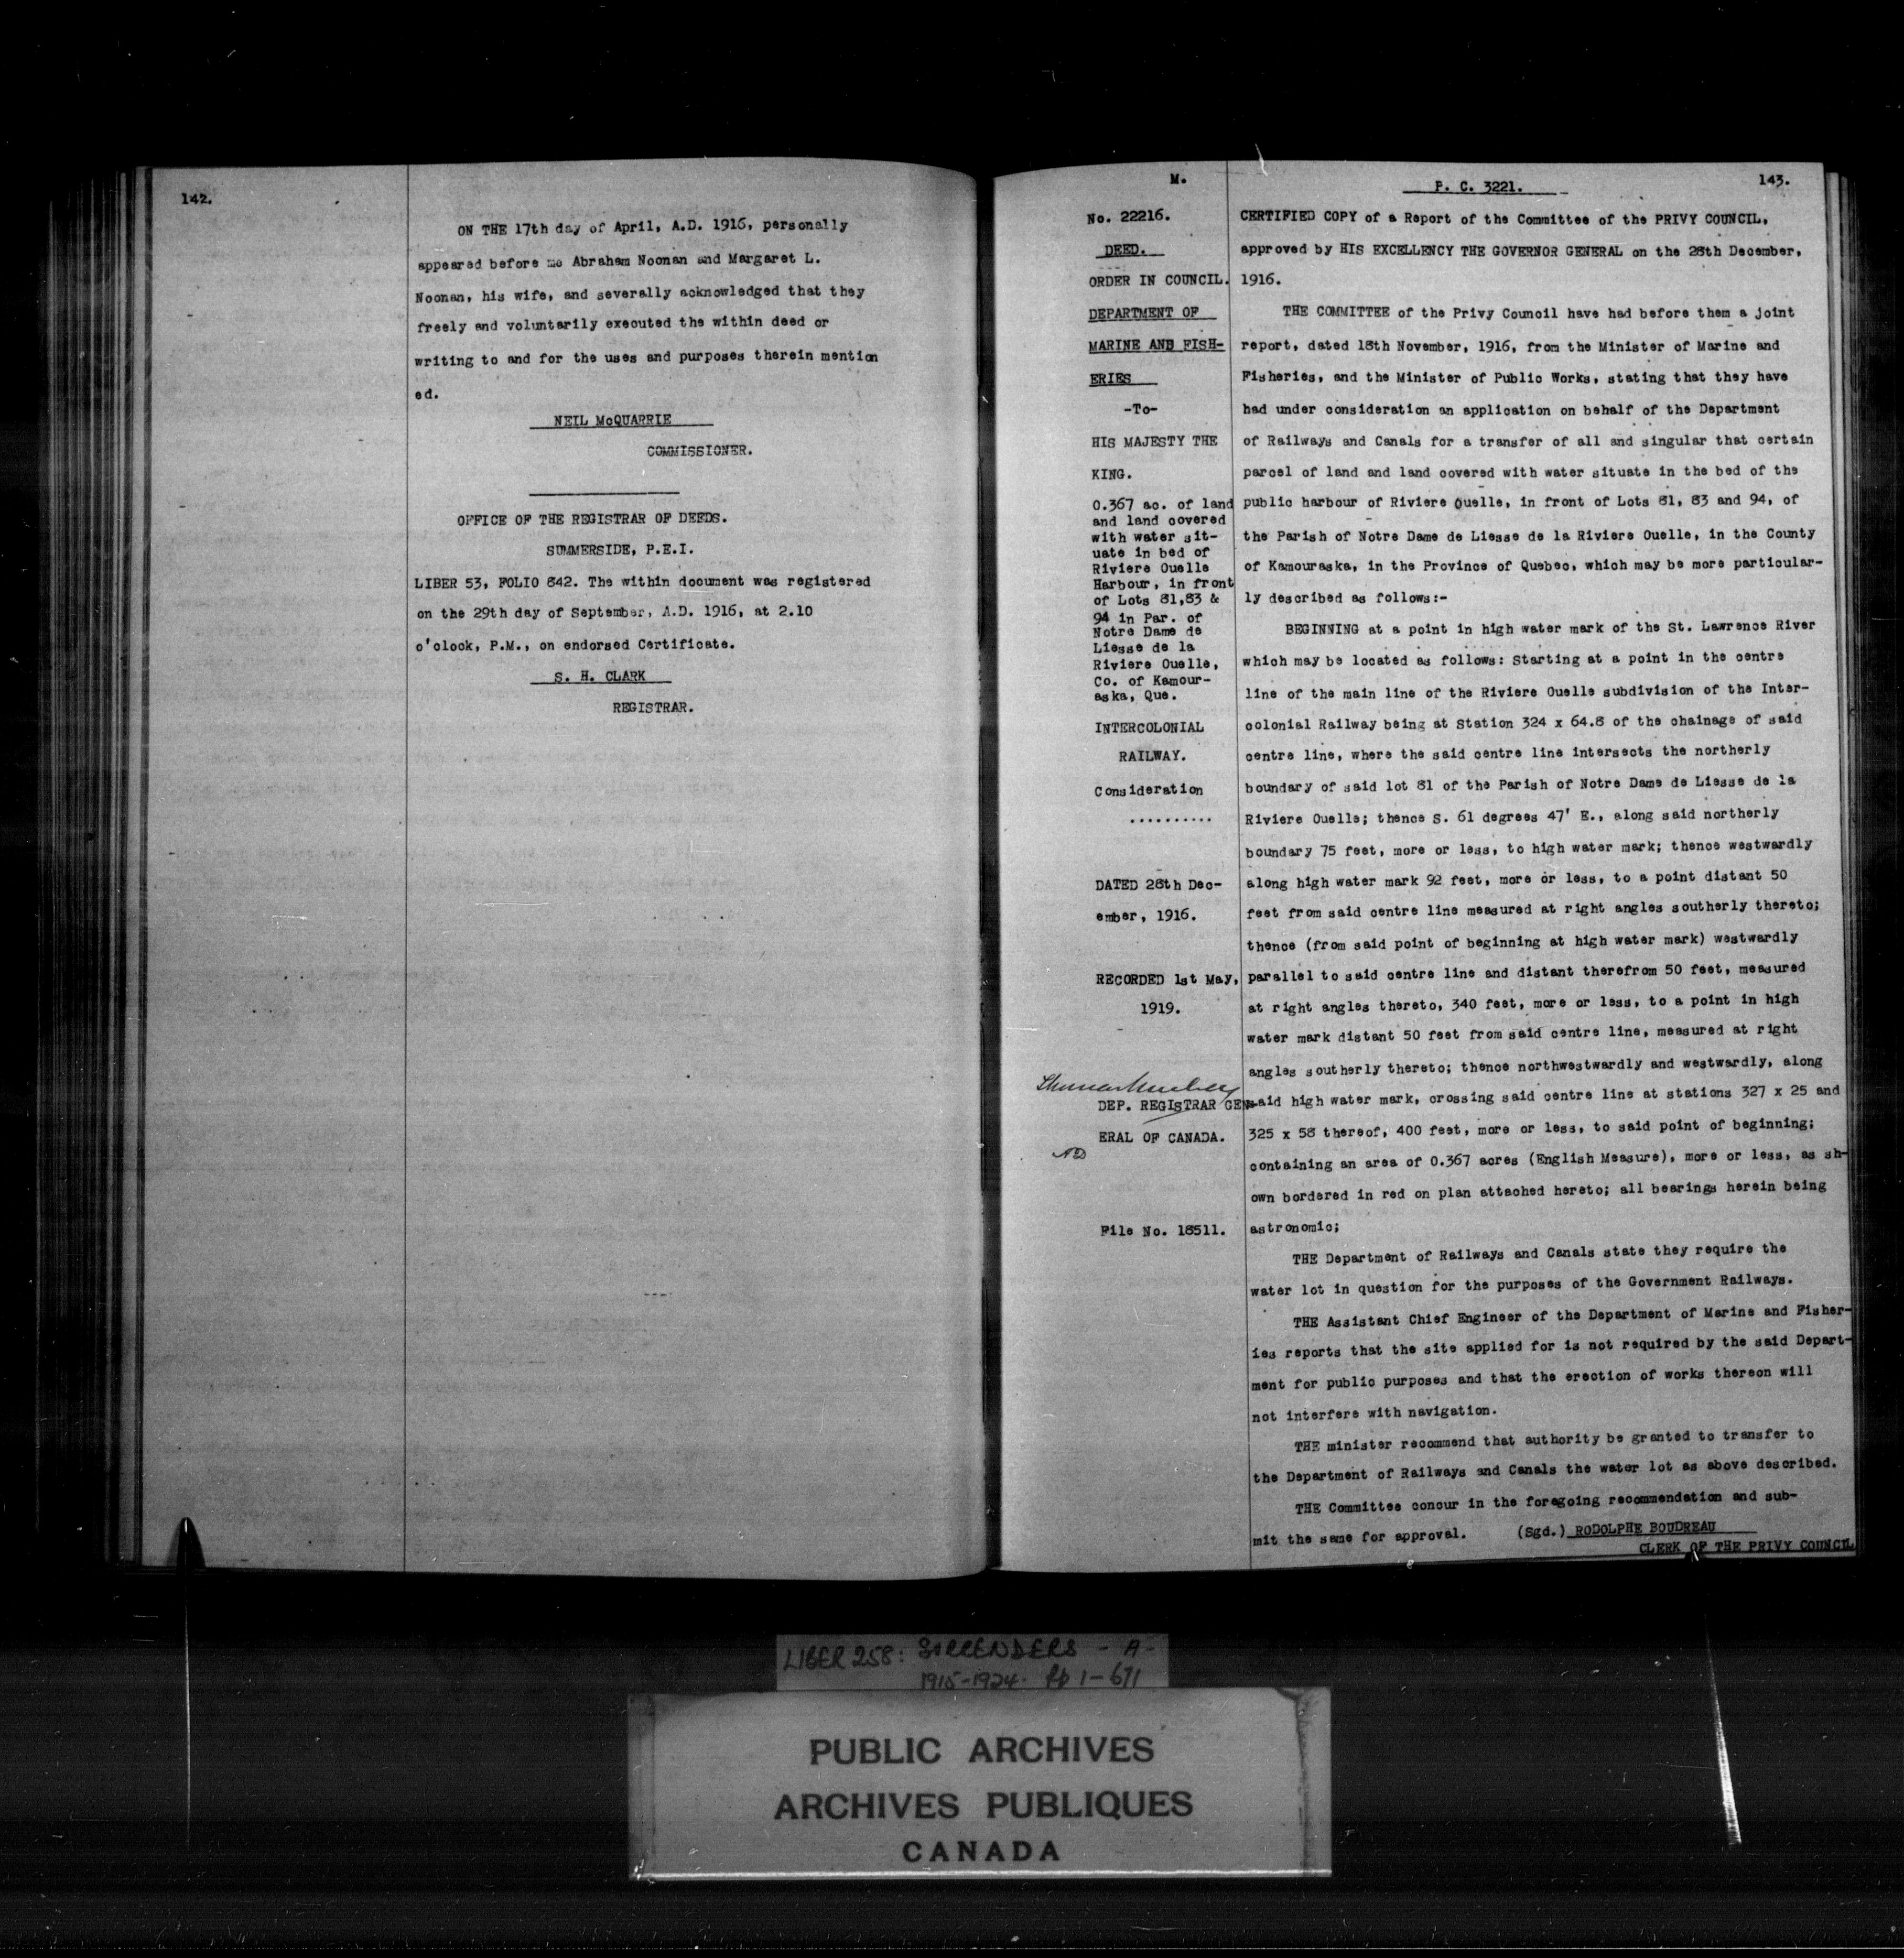 142.
ON THE 17th day of April, A.D. 1916, personally
appeared before me Abraham Noonan and Margaret L.
Noonan, his wife, and severally acknowledged that they
freely and voluntarily executed the within deed or
writing to and for the uses and purposes therein mention
ed.
NEIL McQUARRIE
COMMISSIONER.
OFFICE OF THE REGISTRAR OF DEEDS.
SUMMERSIDE, P.E.I.
LIBER 53, FOLIO 842. The within document was registered
on the 29th day of September, A.D. 1916, at 2.10
o'clock, P.M., on endorsed Certificate.
S. H. CLARK
REGISTRAR.
M.
No. 22216.
DEED.
ORDER IN COUNCIL.
DEPARTMENT OF
MARINE AND FISH-
ERIES
-To-
HIS MAJESTY THE
KING.
0.367 ac. of land
and land covered
with water sit-
uate in bed of
Riviere Ouelle
Harbour, in front
of Lots 81,83 &
94 in Par. of
Notre Dame de
Liesse de la
Riviere Ouelle,
Co. of Kamour-
aska, Que.
INTERCOLONIAL
RAILWAY.
Consideration
..........
DATED 28th Dec-
ember, 1916.
RECORDED 1st May,
1919.
DEP. REGISTRAR GEN-
ERAL OF CANADA.
File No. 18511.
P. C. 3221.
143.
CERTIFIED COPY of a Report of the Committee of the PRIVY COUNCIL,
approved by HIS EXCELLENCY THE GOVERNOR GENERAL on the 28th December,
1916.
THE COMMITTEE of the Privy Council have had before them a joint
report, dated 18th November, 1916, from the Minister of Marine and
Fisheries, and the Minister of Public Works, stating that they have
had under consideration an application on behalf of the Department
of Railways and Canals for a transfer of all and singular that certain
parcel of land and land covered with water situate in the bed of the
public harbour of Riviere Ouelle, in front of Lots 81, 83 and 94, of
the Parish of Notre Dame de Liesse de la Riviere Ouelle, in the County
of Kamouraska, in the Province of Quebec, which may be more particular-
ly described as follows:-
BEGINNING at a point in high water mark of the St. Lawrence River
which may be located as follows: Starting at a point in the centre
line of the main line of the Riviere Ouelle subdivision of the Inter-
colonial Railway being at Station 324 x 64.8 of the chainage of said
centre line, where the said centre line intersects the northerly
boundary of said lot 81 of the Parish of Notre Dame de Liesse de la
Riviere Ouelle; thence S. 61 degrees 47' E., along said northerly
boundary 75 feet, more or less, to high water mark; thence westwardly
along high water mark 92 feet, more or less, to a point distant 50
feet from said centre line measured at right angles southerly thereto;
thence (from said point of beginning at high water mark) westwardly
parallel to said centre line and distant therefrom 50 feet, measured
at right angles thereto, 340 feet, more or less, to a point in high
water mark distant 50 feet from said centre line, measured at right
angles southerly thereto; thence northwestwardly and westwardly, along
said high water mark, crossing said centre line at stations 327 x 25 and
325 x 58 thereof, 400 feet, more or less, to said point of beginning;
containing an area of 0.367 acres (English Measure), more or less, as sh-
own bordered in red on plan attached hereto; all bearings herein being
astronomic;
THE Department of Railways and Canals state they require the
water lot in question for the purposes of the Government Railways.
THE Assistant Chief Engineer of the Department of Marine and Fisher-
ies reports that the site applied for is not required by the said Depart-
ment for public purposes and that the erection of works thereon will
not interfere with navigation.
THE minister recommend that authority be granted to transfer to
the Department of Railways and Canals the water lot as above described.
THE Committee concur in the foregoing recommendation and sub-
mit the same for approval. (Sgd.) RODOLPHE BOUDREAU
CLERK OF THE PRIVY COUNCIL
LIBER 258: SURRENDERS - A -
1915-1924. pp 1-671
PUBLIC ARCHIVES
ARCHIVES PUBLIQUES
CANADA